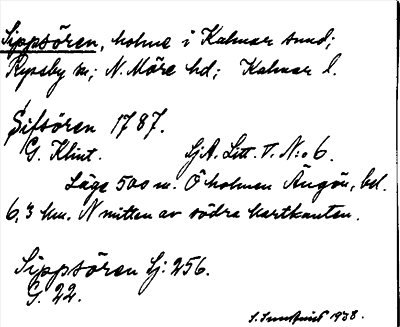 Sippsören, holme i Kalmar sund;
Ryssby sn; N. Möre hd; Kalmar l.
Sifsören 1787.
G. Klint. SjA. Litt. V. N:o 6.
Läge 500 m. Ö holmen Ängön, bel.
6,3 km. N mitten av södra kartkanten.
Sippsören Sj: 256.
G. 22.
1938.